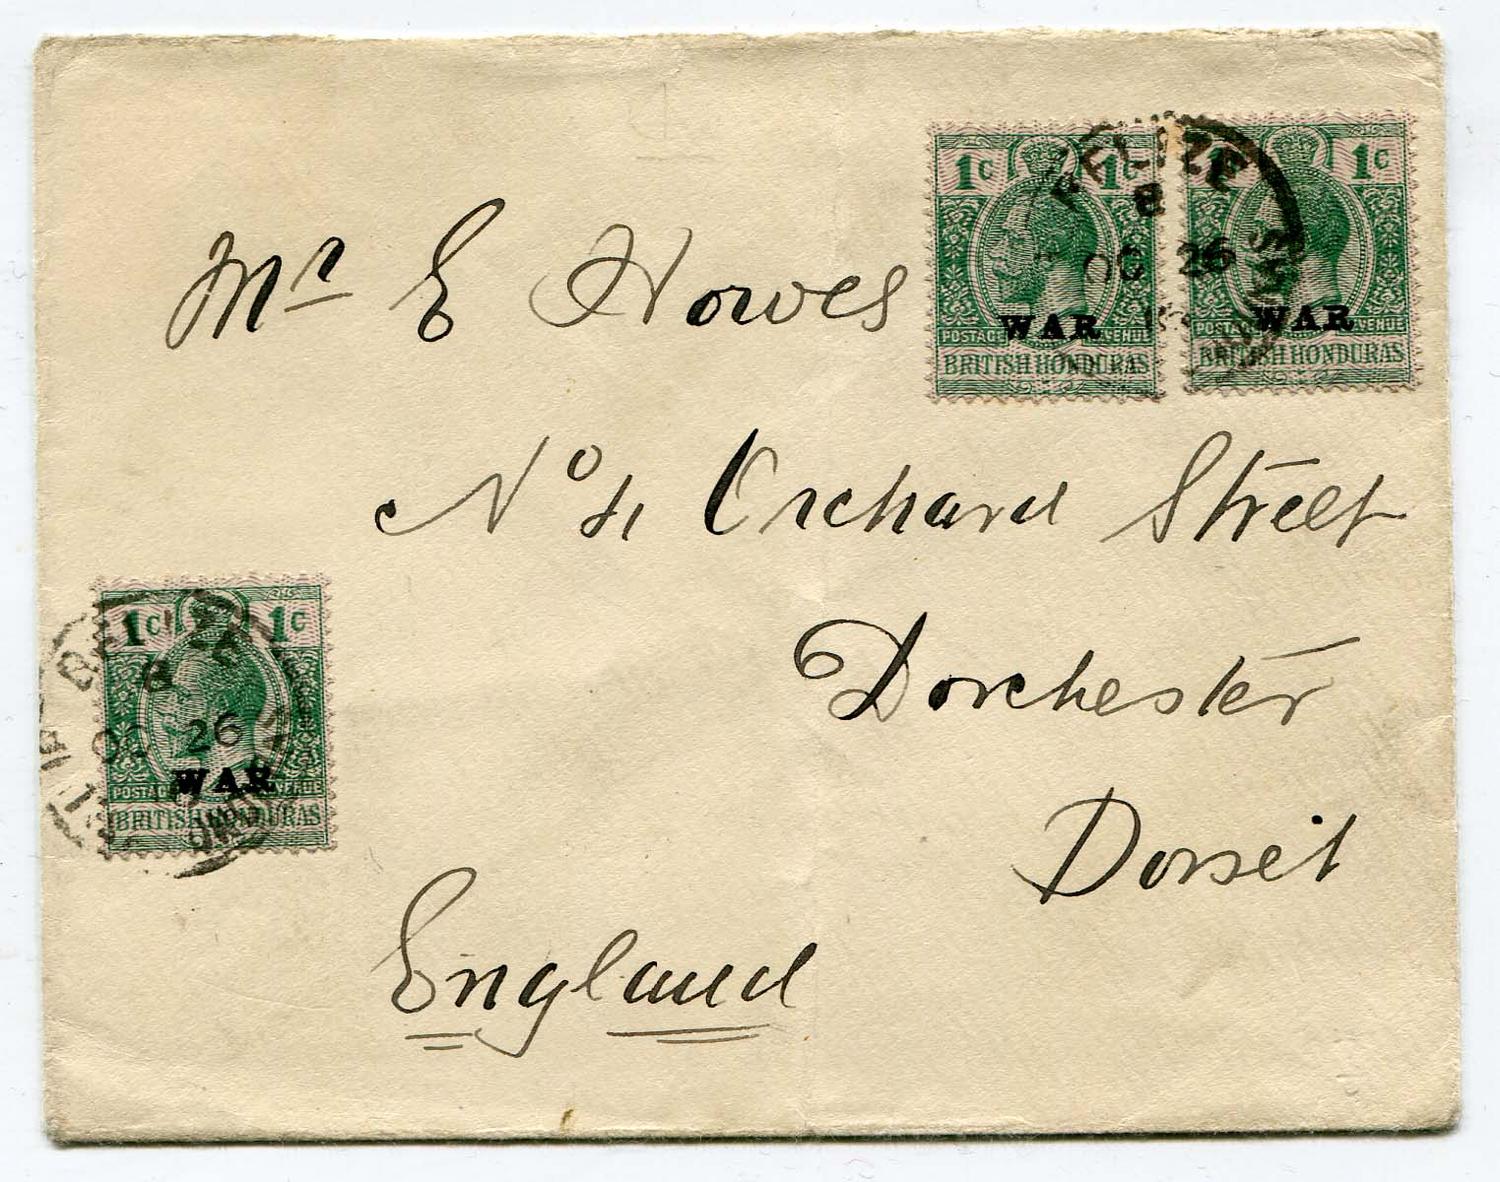 1c 1c
WAR
POSTAGE REVENUE
BRITISH HONDURAS
1c
WAR
POSTAGE REVENUE
BRITISH HONDURAS
BELIZE
B
OC 26
Mr E Howes
No 4 Orchard Street
Dorchester
Dorset
England
1c 1c
WAR
POSTAGE REVENUE
BRITISH HONDURAS
BELIZE
B
OC 26